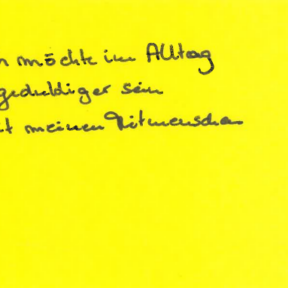 n möchte im Alltag
geduldiger sein
it meinen Mitmenschen